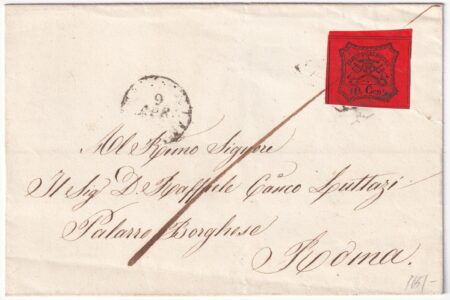 10 Cent
9
APR
Al Rmo Signore
Il Sig D. Raffaele Canco Luttazi
Palazzo Borghese
Roma.